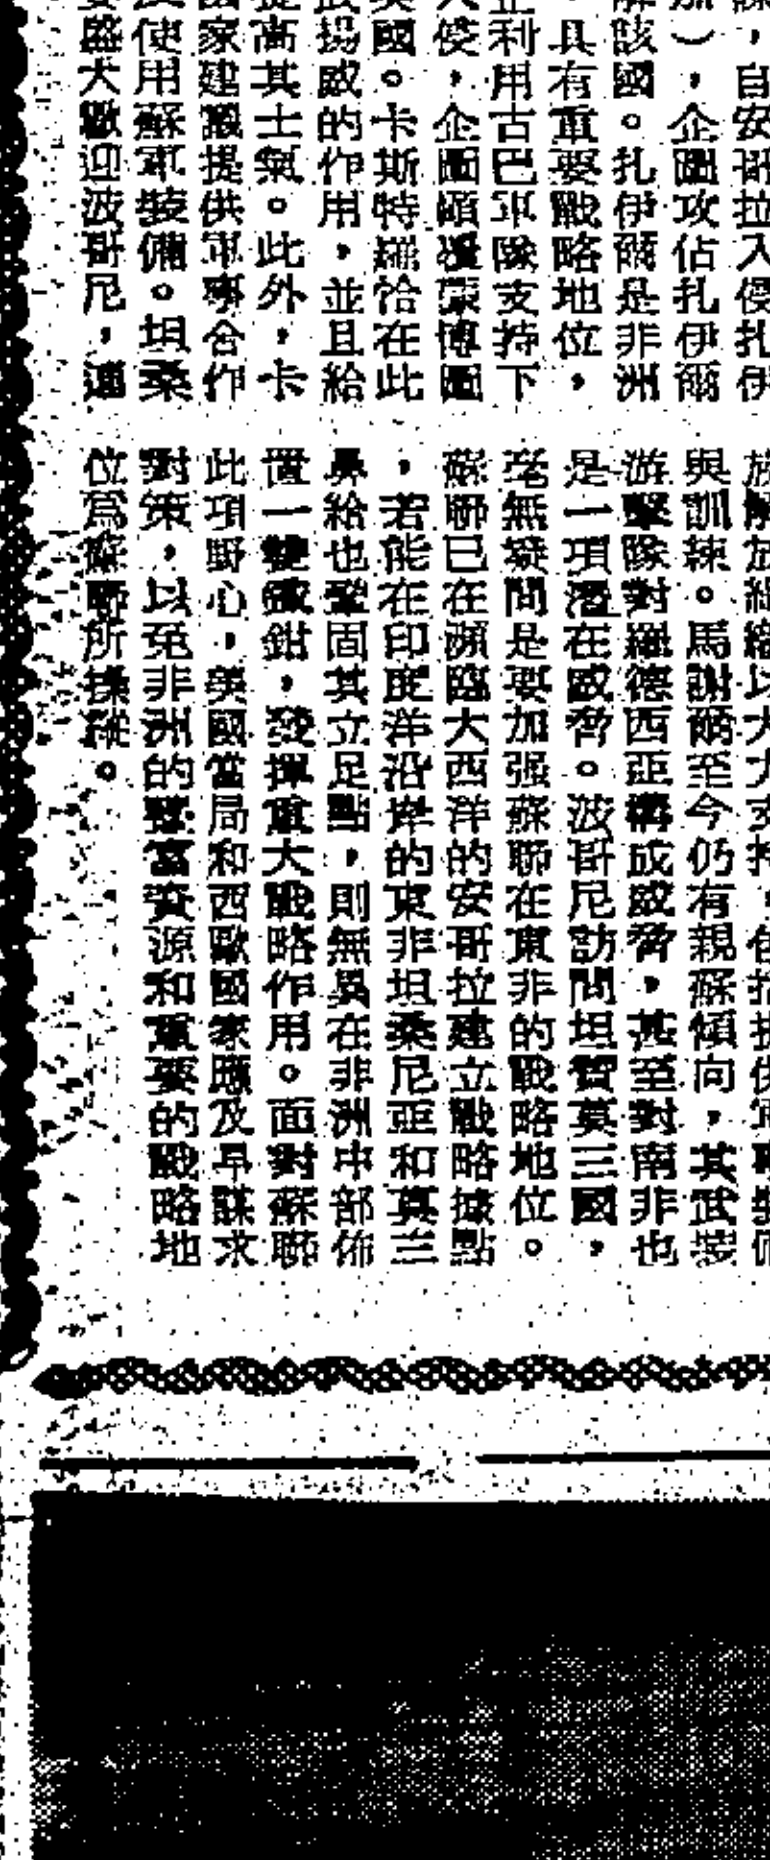 諜，自安哥拉入侵扎伊
加），企圖攻佔扎伊爾
解該國。扎伊爾是非洲
，具有重要戰略地位，
企利用古巴軍隊支持下
入侵，企圖顛覆蒙博圖
美國。卡斯特羅恰在此
武揚威的作用，並且給
提高其士氣。此外，卡
國家建議提供軍事合作
使用蘇軍裝備。坦桑
要盛大歡迎波哥尼，連
族解放組織以大力支持，包括提供軍事裝備
與訓練。馬謝爾至今仍有親蘇傾向，其武裝
游擊隊對羅德西亞構成威脅，甚至對南非也
是一項潛在威脅。波哥尼訪問坦贊莫三國，
毫無疑問是要加强蘇聯在東非的戰略地位。
蘇聯已在瀕臨大西洋的安哥拉建立戰略據點
，若能在印度洋沿岸的東非坦桑尼亞和莫三
鼻給也鞏固其立足點，則無異在非洲中部佈
置一雙鐵鉗，發揮重大戰略作用。面對蘇聯
此項野心，美國當局和西歐國家應及早謀求
對策，以免非洲的豐富資源和重要的戰略地
位爲蘇聯所操縱。